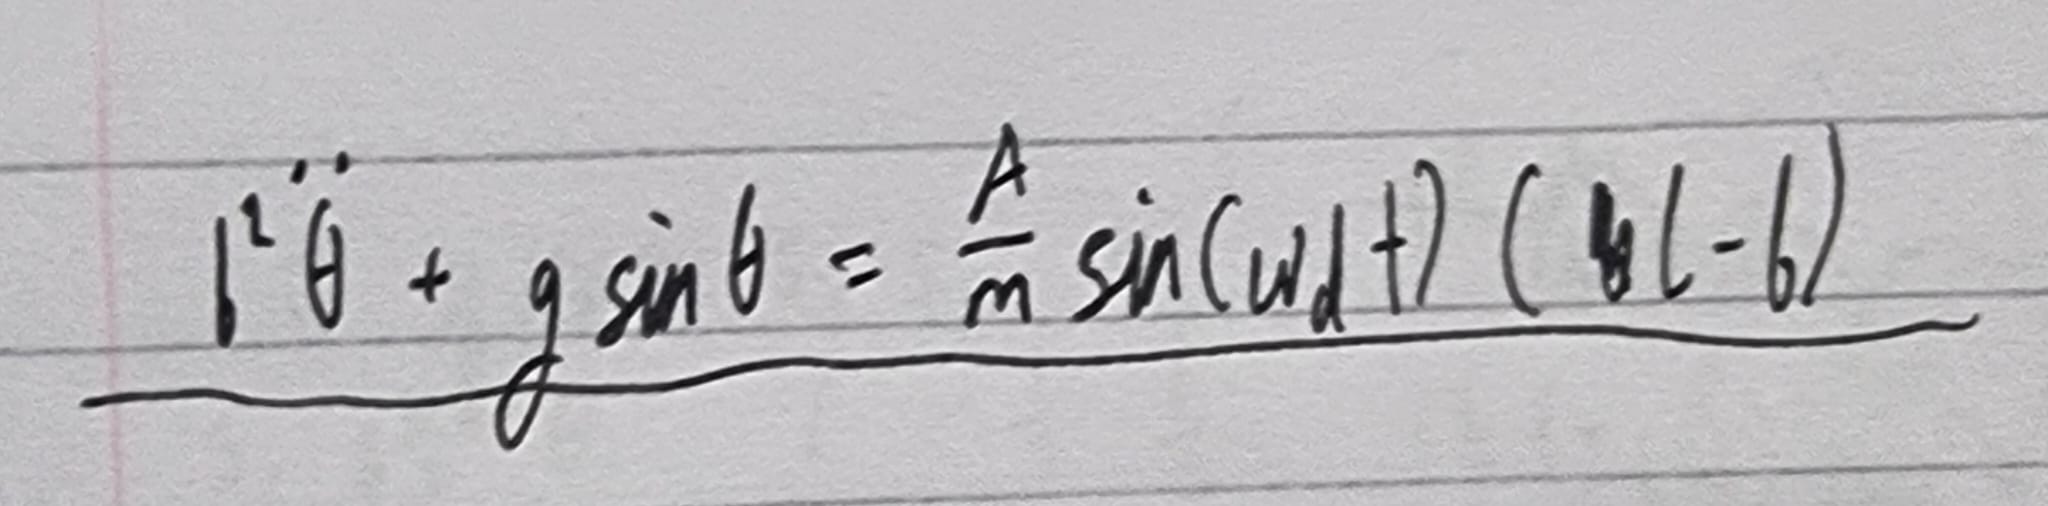 b² θ̈ + g sin θ = A/m sin(ωd t) (l - b)